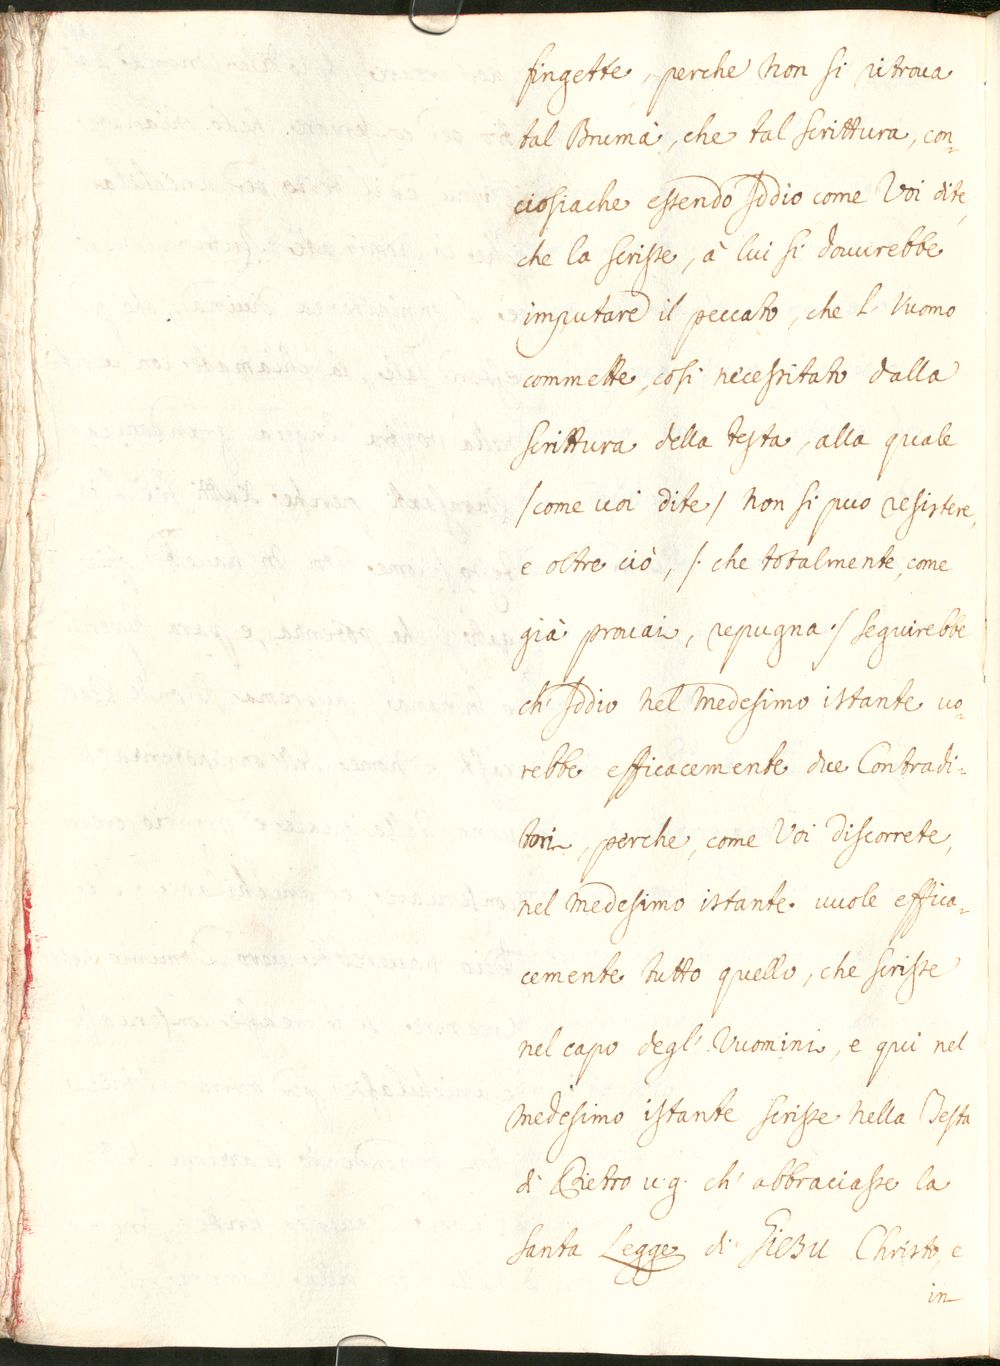 fingette, perche non si ritroua
tal Brumà, che tal Scrittura, con-
ciosiache essendo Iddio come Voi dite,
che la scrisse, à lui si douurebbe
imputare il peccato, che l' Vuomo
commette, così necessitato dalla
Scrittura della testa, alla quale
/come uoi dite/ non si puo resistere,
e oltre ciò, /. che totalmente, come
già prouai, repugna ./ seguirebbe
ch' Iddio nel medesimo istante uo-
rebbe efficacemente due Contradi-
tori, perche, come Voi discorrete,
nel medesimo istante uuole effica-
cemente tutto quello, che scrisse
nel capo degl' Vuomini, e qui nel
medesimo istante scrisse nella Testa
di Pietro u:g: ch' abbraciasse la
santa Legge di Giesu Christo, e
in